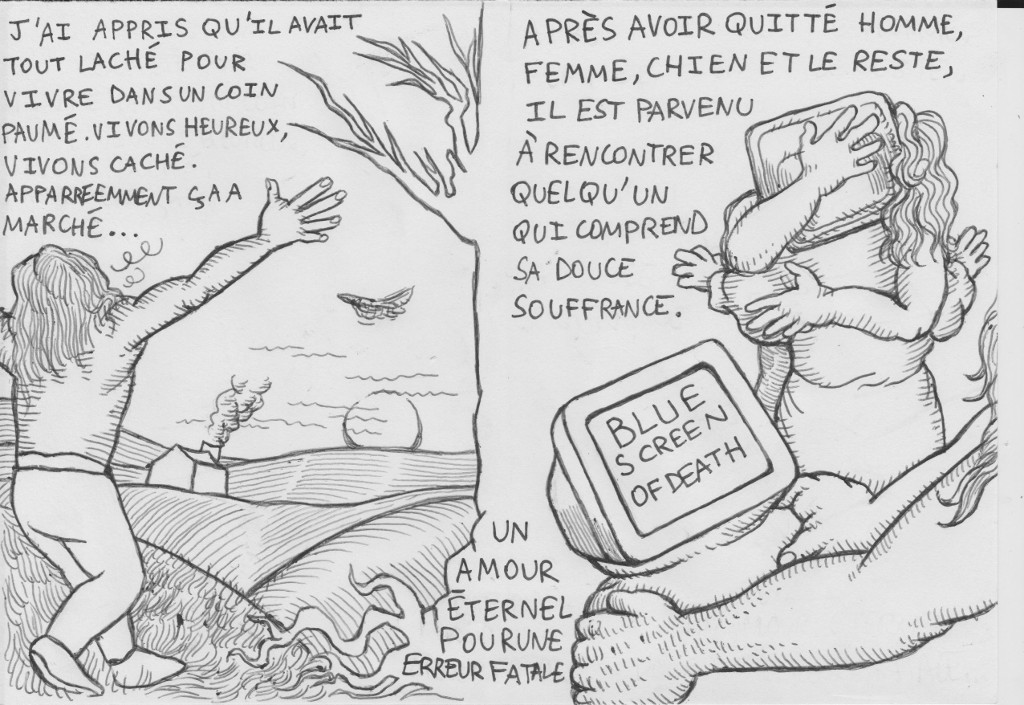 J'AI APPRIS QU'IL AVAIT
TOUT LACHÉ POUR
VIVRE DANS UN COIN
PAUMÉ. VIVONS HEUREUX,
VIVONS CACHÉ.
APPARREEMMENT ÇA A
MARCHÉ...
APRÈS AVOIR QUITTÉ HOMME,
FEMME, CHIEN ET LE RESTE,
IL EST PARVENU
À RENCONTRER
QUELQU'UN
QUI COMPREND
SA DOUCE
SOUFFRANCE.
BLUE
SCREEN
OF DEATH
UN
AMOUR
ÉTERNEL
POUR UNE
ERREUR FATALE